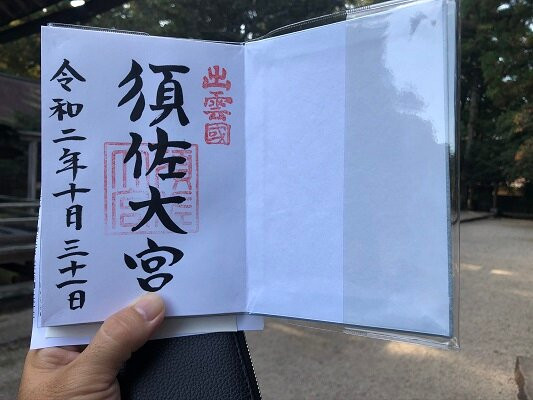 出雲國
須佐大宮
令和二年十月三十一日